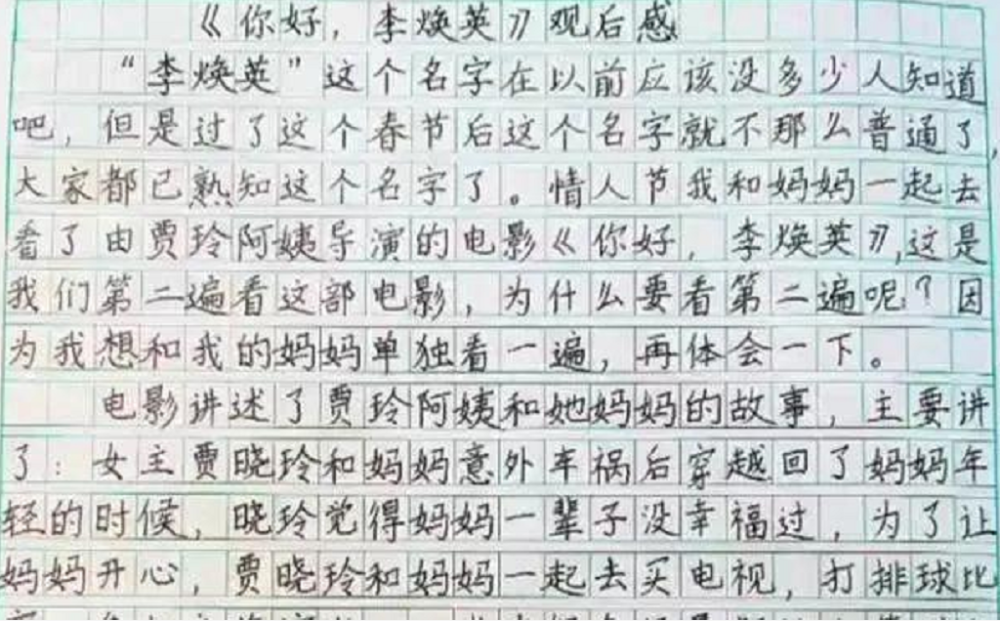 《你好，李焕英》观后感
“李焕英”这个名字在以前应该没多少人知道
吧，但是过了这个春节后这个名字就不那么普通了，
大家都已熟知这个名字了。情人节我和妈妈一起去
看了由贾玲阿姨导演的电影《你好，李焕英》，这是
我们第二遍看这部电影，为什么要看第二遍呢？因
为我想和我的妈妈单独看一遍，再体会一下。
电影讲述了贾玲阿姨和她妈妈的故事，主要讲
了：女主贾晓玲和妈妈意外车祸后穿越回了妈妈年
轻的时候，晓玲觉得妈妈一辈子没幸福过，为了让
妈妈开心，贾晓玲和妈妈一起去买电视，打排球比